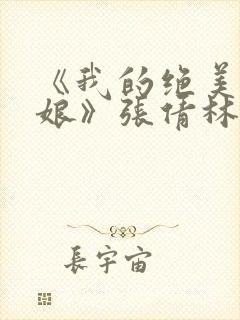 《我的绝美
娘》張倩林
長宇宙